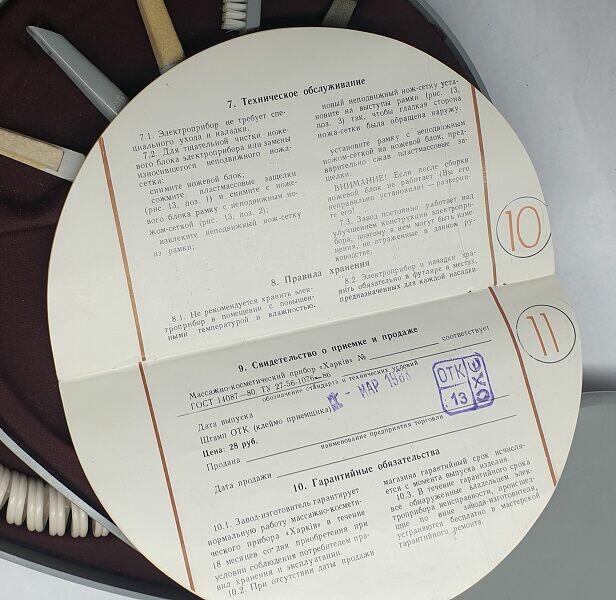 7. Техническое обслуживание
7.1. Электроприбор не требует спе-
циального ухода и наладки.
7.2. Для тщательной чистки ноже-
вого блока электроприбора или замены
износившегося неподвижного ножа-
сетки:
снимите ножевой блок;
сожмите пластмассовые защелки
(рис. 13, поз. 1) и снимите с ноже-
вого блока рамку с неподвижным но-
жом-сеткой (рис. 13, поз. 2);
извлеките неподвижный нож-сетку
из рамки;
новый неподвижный нож-сетку уста-
новите на выступы рамки (рис. 13,
поз. 3) так, чтобы гладкая сторона
ножа-сетки была обращена наружу.
установите рамку с неподвижным
ножом-сеткой на ножевой блок, пред-
варительно сжав пластмассовые за-
щелки.
ВНИМАНИЕ! Если после сборки
ножевой блок не работает (Вы его
неправильно установили) — разверни-
те его!
7.3. Завод постоянно работает над
улучшением конструкции электропри-
бора, поэтому в нем могут быть изме-
нения, не отраженные в данном ру-
ководстве.
10
8. Правила хранения
8.1. Не рекомендуется хранить элек-
троприбор в помещении с повышен-
ными температурой и влажностью.
8.2. Электроприбор и насадки хра-
нить обязательно в футляре в местах,
предназначенных для каждой насадки
11
9. Свидетельство о приемке и продаже
Массажно-косметический прибор «Харкiв» № соответствует
ГОСТ 14087—80, ТУ 27-56-1076—86
обозначение стандарта и технических условий
Дата выпуска
- МАР 198
Штамп ОТК (клеймо приемщика)
ОТК
13
Цена: 28 руб.
Продана
наименование предприятия торговли
Дата продажи
10. Гарантийные обязательства
10.1. Завод-изготовитель гарантирует
нормальную работу массажно-космети-
ческого прибора «Харкiв» в течение
18 месяцев со дня приобретения при
условии соблюдения потребителем пра-
вил хранения и эксплуатации.
10.2. При отсутствии даты продажи
магазина гарантийный срок исчисля-
ется с момента выпуска изделия.
10.3. В течение гарантийного срока
все обнаруженные владельцем элек-
троприбора неисправности, происшед-
шие по вине завода-изготовителя,
устраняются бесплатно в мастерской
гарантийного ремонта.